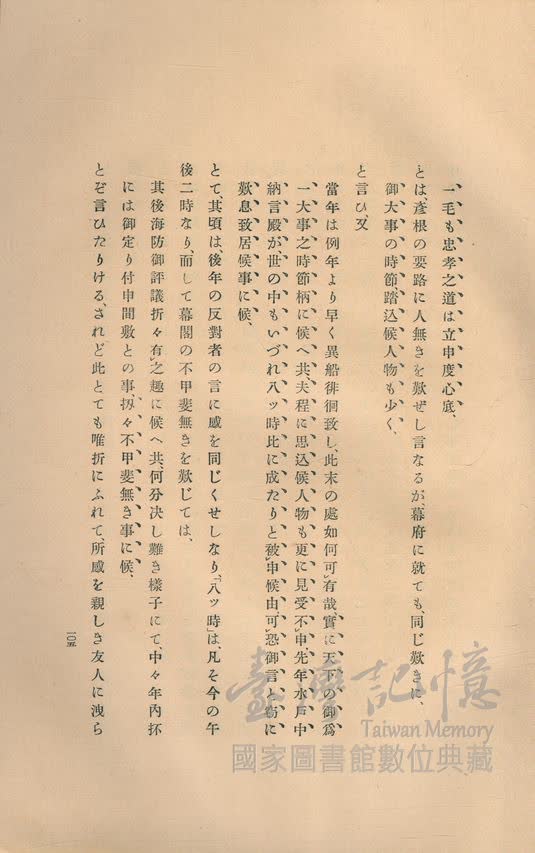 一毛も忠孝之道は立申度心底、
とは、彥根の要路に人無きを歎ぜし言なるが、幕府に就ても、同じ歎きに、
御大事の時節、踏込候人物も少く、
と言ひ、又
當年は例年より早く異船徘徊致し、此末の處如何可有哉、實に天下の御爲
一大事之時節柄に候へ共、夫程に思込候人物も更に見受不申、先年水戶中
納言殿が、世の中もいづれ八ッ時比に成たりと被申候由、可恐御言と竊に
歎息致居候事に候、
とて其頃は、後年の反對者の言に感を同じくせしなり、「八ッ時」は、凡そ今の午
後二時なり、而して幕閣の不甲斐無きを歎じては、
其後海防御評議折々有之趣に候へ共、何分決し難き樣子にて、中々年內抔
には御定り付申間敷との事、扨々不甲斐無き事に候、
とぞ言ひたりける、されど此とても唯折にふれて、所感を親しき友人に洩ら
一〇五
臺灣記憶
Taiwan Memory
國家圖書館數位典藏